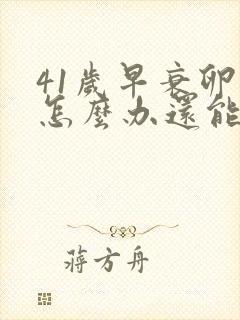 41歲早衰卵
怎麼办還能
蔣方舟